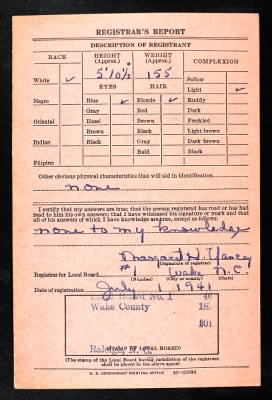 REGISTRAR'S REPORT
DESCRIPTION OF REGISTRANT
RACE HEIGHT (Approx.) WEIGHT (Approx.) COMPLEXION
5' 10½ 155 Sallow
White ✓ EYES HAIR Light ✓
Negro Blue ✓ Blonde ✓ Ruddy
Gray Red Dark
Oriental Hazel Brown Freckled
Brown Black Light brown
Indian Black Gray Dark brown
Bald Black
Filipino
Other obvious physical characteristics that will aid in identification
none
I certify that my answers are true; that the person registered has read or has had
read to him his own answers; that I have witnessed his signature or mark and that
all of his answers of which I have knowledge are true, except as follows:
none to my knowledge
Margaret D. Yancey
(Signature of registrar)
Registrar for Local Board #1 Wake N.C.
(Number) (City or county) (State)
Date of registration July 1 1941
Board No. 1
Wake County 18
001
Raleigh, N. C.
(STAMP OF LOCAL BOARD)
(The stamp of the Local Board having jurisdiction of the registrant
shall be placed in the above space)
U. S. GOVERNMENT PRINTING OFFICE